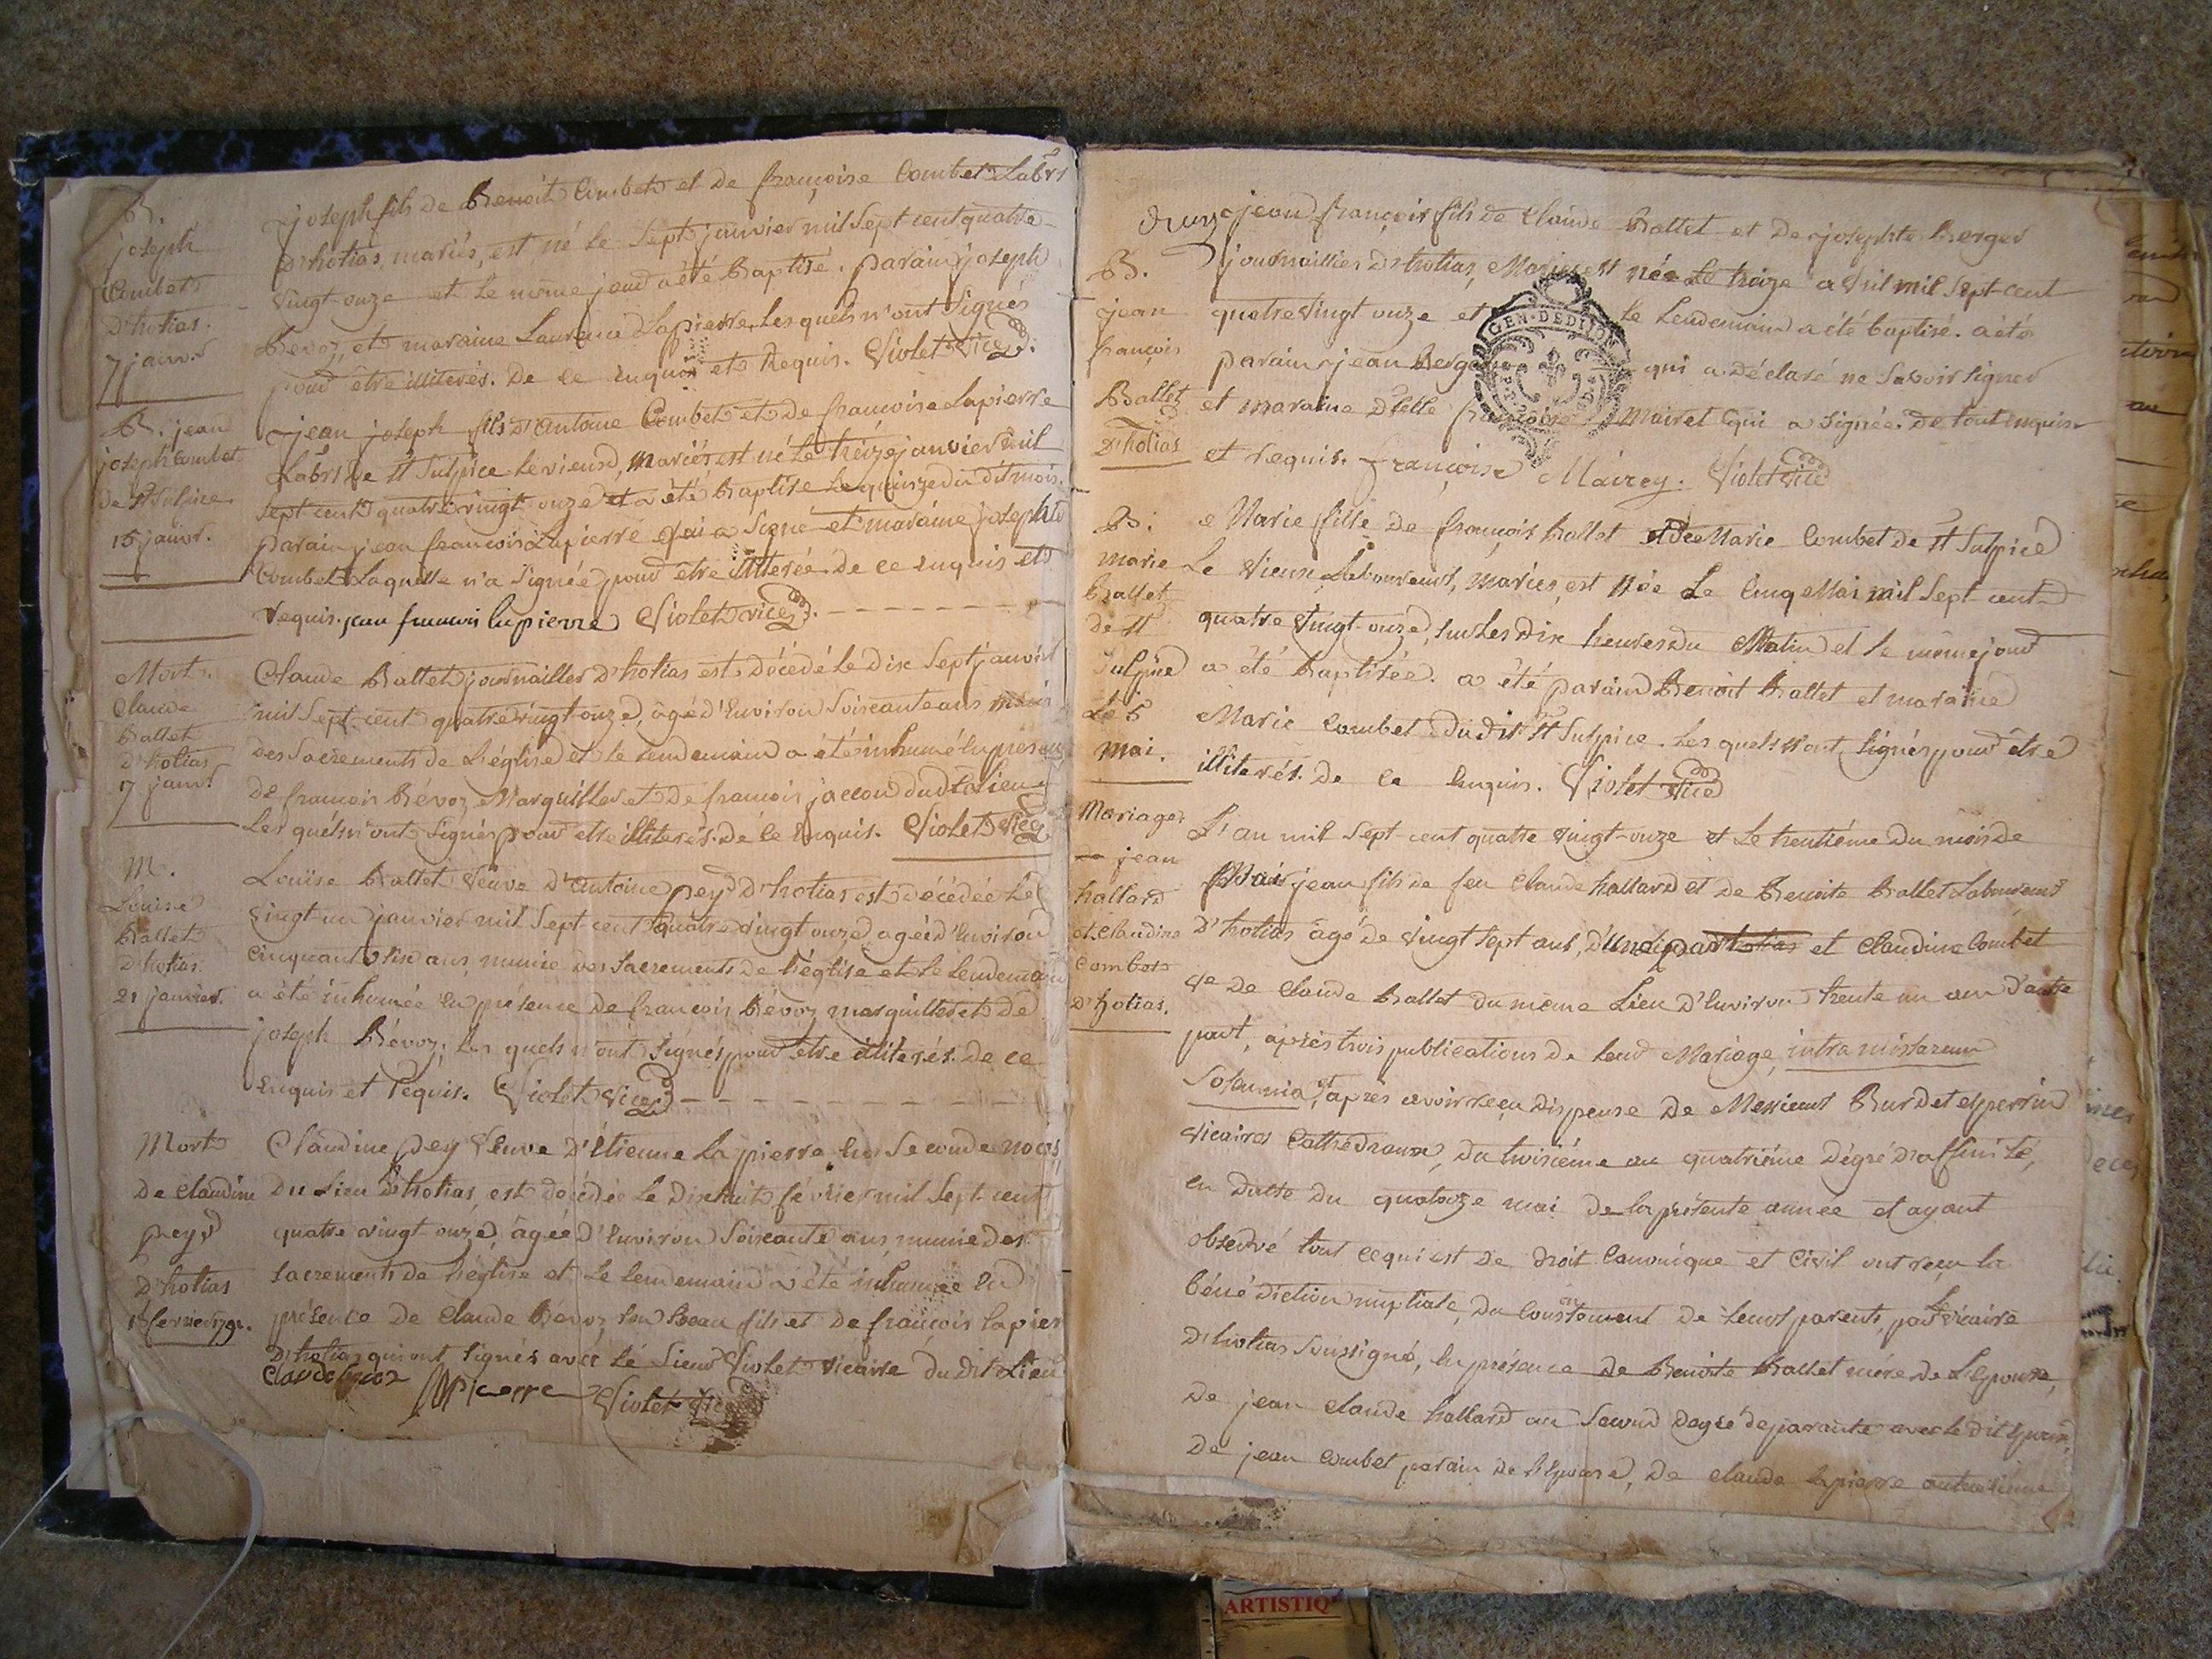 B.
joseph
Combet
D'hotias.
7 janv.r
joseph fils de Benoit Combet et de françoise Combet Labrs
D'hotias, mariés, est né le sept janvier mil sept cent quatre-
vingt-onze et le même jour a été Baptisé. parain joseph
Bevoz, et maraine Laurence Lapierre, Lesquels n'ont signés
pour être illiterés. De ce enquis et Requis. Violet vice
B. jean
joseph Combet
de St Sulpice
15 janvr.
jean joseph fils d'Antoine Combet et de françoise Lapierre
Labrs de St Sulpice le vieux, mariés est né le treize janvier mil
sept cent quatre vingt onze et a été baptisé le quinze du dit mois.
parain jean françois Lapierre qui a signé et maraine josephte
Combet Laquelle n'a signée pour être illiterée. De ce enquis et
requis. jean francois lapierre Violet vice.
Mort.
Claude
Ballet
d'hotias
7 janv.r
Claude Ballet journaillier d'hotias est décédé le dix sept janvier
mil sept-cent quatre vingt onze, âgé d'environ soixante ans, muni
des Sacrements de L'église et le lendemain a été inhumé en présence
de françois Bévoz, Marguiller et de françois jaccou dudt lieu
Lesquels n'ont signés pour etre illiterés. de ce enquis. Violet vice
M.
Louise
Ballet
D'hotias.
21 janvier.
Louise Ballet veuve d'antoine pey d'hotias est décédée le
vingt-un janvier mil sept cent quatre vingt onze âgée d'environ
cinquante six ans, munie des Sacrements de l'église et le lendemain
a été inhumée en présence de françois Bévoz marguiller et de
joseph Bévoz, Lesquels n'ont signés pour être illiterés. De ce
enquis et requis. Violet vice
Mort
De claudine
pey
D'hotias
18 fevrier 1791.
Claudine pey veuve d'étienne la pierre en seconde noces,
du Lieu d'hotias, est décédée le dixhuit février mil sept-cent
quatre vingt-onze, âgée d'environ soixante ans, munie des
sacrements de l'église et le lendemain a été inhumée en
présence de claude Bévoz son Beau fils et de françois lapier
d'hotias qui ont signés avec le sieur Violet vicaire du dit Lieu
Claude bevoz lapierre Violet vice
B.
jean
françois
Ballet
D'hotias
jean françois fils de Claude Ballet et de josephte Berger
journailliers d'hotias, Mariés est né le treize avril mil sept-cent
quatre vingt onze et le Lendemain a été baptisé. a été
GEN. DE DIJON
parain jean Berger qui a déclaré ne savoir signer
et maraine D'elle françoise Mairet qui a signée. De tout enquis
et requis. françoise Mairey. Violet vice
B.
marie
Ballet
de St
Sulpice
Le 5
mai.
Marie fille de françois Ballet et de Marie Combet de St Sulpice
Le vieux, Laboureurs, mariés, est née Le cinq Mai mil sept-cent
quatre vingt-onze, sur les dix heures du Matin et le même jour
a été baptisée. a été parain Benoit Ballet et maraine
Marie Combet du dit St Sulpice. Lesquels n'ont signés pour être
illiterés. De ce enquis. Violet vice
Mariage
de jean
hallard
et claudine
Combet
D'hotias.
L'an mil sept-cent quatre vingt-onze et le trentiéme du mois de
Mai jean fils de feu Claude hallard et de Benoite Ballet Laboureur
D'hotias âgé de vingt sept ans, d'une part et Claudine Combet
ve de Claude Ballet du même Lieu d'environ trente un ans d'autre
part, après trois publications de leur Mariage, intra missarum
solemnia, et après avoir reçu dispense de Messieurs Burdet et perrin
vicaires Cathédraux, du troisiéme au quatriéme dégré d'affinité,
en datte du quatorze mai de la présente année et ayant
observé tout ce qui est de droit Canonique et Civil ont reçu la
bénédiction nuptiale, du consentement de leurs parents, par le vicaire
D'hotias soussigné, en présence de Benoite Ballet mère de L'epoux,
De jean claude hallard au second degré de parenté avec le dit époux,
De jean combet parain de l'épouse, De claude lapierre
ARTISTIQ